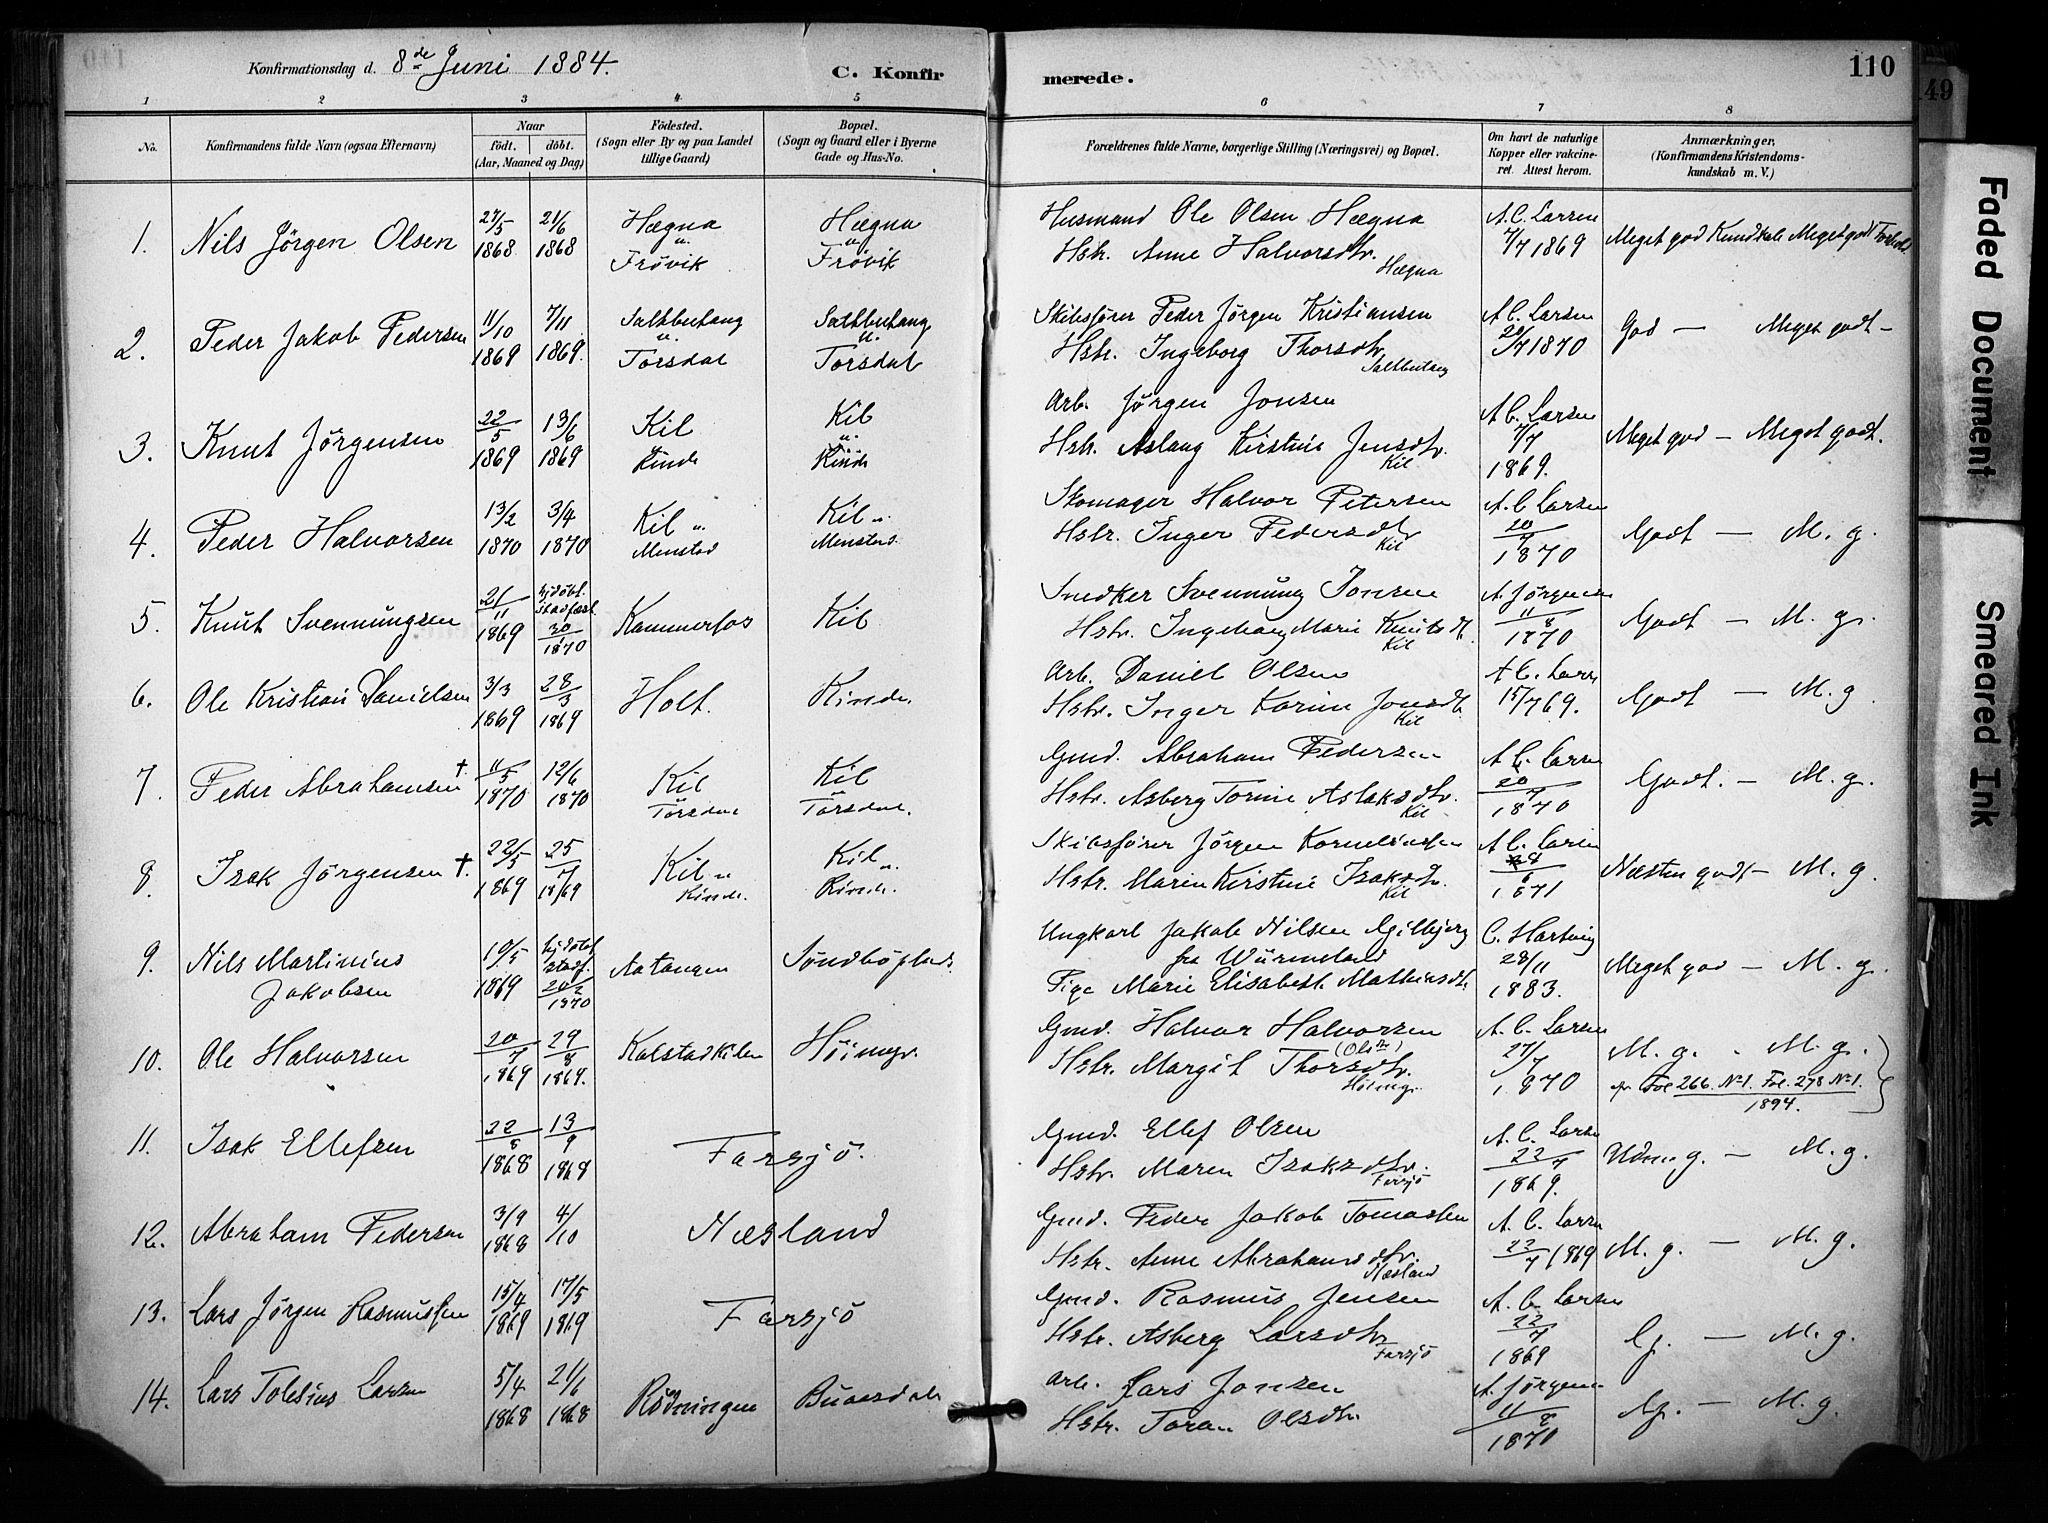 Konfirmationsdag d. 8de Juni 1884.
C. Konfir
merede.
110
49
1 2 3 4 5 6 7 8
No.
Konfirmandens fulde Navn (ogsaa Efternavn)
Naar
födt. döbt.
(Aar, Maaned og Dag)
Födested.
(Sogn eller By og paa Landet
tillige Gaard)
Bopæl.
(Sogn og Gaard eller i Byerne
Gade og Hus-No.
Forældrenes fulde Navne, borgerlige Stilling (Næringsvei) og Bopæl.
Om havt de naturlige
Kopper eller vakcine-
ret. Attest herom.
Anmærkninger,
(Konfirmandens Kristendoms-
kundskab m. V.)
1. Nils Jörgen Olsen 27/5 1868 21/6 1868 Hægna u. Frövik Hægna u. Frövik
Husmand Ole Olsen Hægna
Hstr. Anne Halvorsdtr. Hægna
A. C. Larsen 7/7 1869
Meget god Kundskab Meget godt Forhold.
2. Peder Jakob Pedersen 11/10 1869 7/11 1869. u. Torsdal u. Torsdal
Skibsfører Peder Jörgen Kristiansen
Hstr. Ingeborg Thorsdtr.
A C. Larsen 20/7 1870
God — Meget godt —
3. Knut Jörgensen 22/5 1869 13/6 1869 Kil Rinde Kil u. Rinde
Arb. Jörgen Jonsen
Hstr. Aslaug Kirstine Jensdtr. Kil
A C. Larsen 7/7 1869.
Meget god — Meget godt.
4. Peder Halvorsen 13/2 1870 3/4 1870 Kil u. Menstad Kil u. Menstad
Skomager Halvor Petersen
Hstr. Inger Pedersdtr Kil
A. C. Larsen 20/7 1870
Godt — M. g.
5. Knut Svennungsen 21/11 1869 hjdöbt. stadfæst 30/1 1870 Kammerfos Kil
Snedker Svennung Jonsen
Hstr. Ingeborg Marie Knutsdt. Kil
A. Jörgensen 11/8 1870
Godt — M. g.
6. Ole Kristian Danielsen 3/3 1869 28/3 1869 Holt. Rinde.
Arb. Daniel Olsen
Hstr. Inger Karine Jonsdt. Kil
A C. Larsen 15/7 69.
Godt — M. g.
7. Peder Abrahamsen † 11/5 1870 12/6 1870 Kil Torsdal Kil u Torsdal.
Gmd. Abraham Pedersen
Hstr. Asberg Torine Aslaksdtr. Kil
A C. Larsen 20/7 1870
Godt. — M. g.
8. Isak Jörgensen †. 22/5 1869 25/7 1869 Kil u Rinde. Kil u. Rinde.
Skibsfører Jörgen Korneliussen
Hstr. Maren Kirstine Isaksdtr. Kil
A C. Larsen 1871
Næsten godt — M. g.
9. Nils Martinius Jakobsen 19/5 1869 hjdöbt stadf. 20/2 1870 Aatangen Søndböplads.
Ungkarl Jakob Nilsen Gilbjerg
fra Würmeland
Pige Marie Elisabeth Mathisdt.
C. Hartvig 28/11 1883.
Meget god — M. g.
10. Ole Halvorsen 20/7 1869 29/8 1869. Kalstadkilen
Gmd. Halvor Halvorsen
Hstr. Margit Thorsdtr. (Olsdtr)
A. C. Larsen 27/7 1870
M. g. . M. g.
Fol 266. No 1. Fol. 278 No 1. 1894.
11. Isak Ellefsen 22/8 1868 13/9 1868 Farsjö.
Gmd. Ellef Olsen
Hstr. Maren Isaksdtr. Farsjö
A. C. Larsen 22/7 1869.
Udm g. — M. g.
12. Abraham Pedersen 3/9 1868 4/10 Næsland
Gmd. Peder Jakob Tomassen
Hstr. Anne Abrahamsdtr. Næsland
A. C. Larsen 22/7 1869
M. g. — M. g.
13. Lars Jörgen Rasmussen 15/4 1869 17/5 1869 Farsjö
Gmd. Rasmus Jensen
Hstr. Asberg Larsdtr Farsjö
A. C. Larsen 22/7 1869
G. — M. g.
14. Lars Tolesius Larsen 5/4 1868 21/6 1868 Rödningen Buaesdal
Arb. Lars Jonsen
Hstr. Toran Olsdtr.
A. Jörgens 11/8 1870
G. — M. g.
Faded Document
Smeared Ink